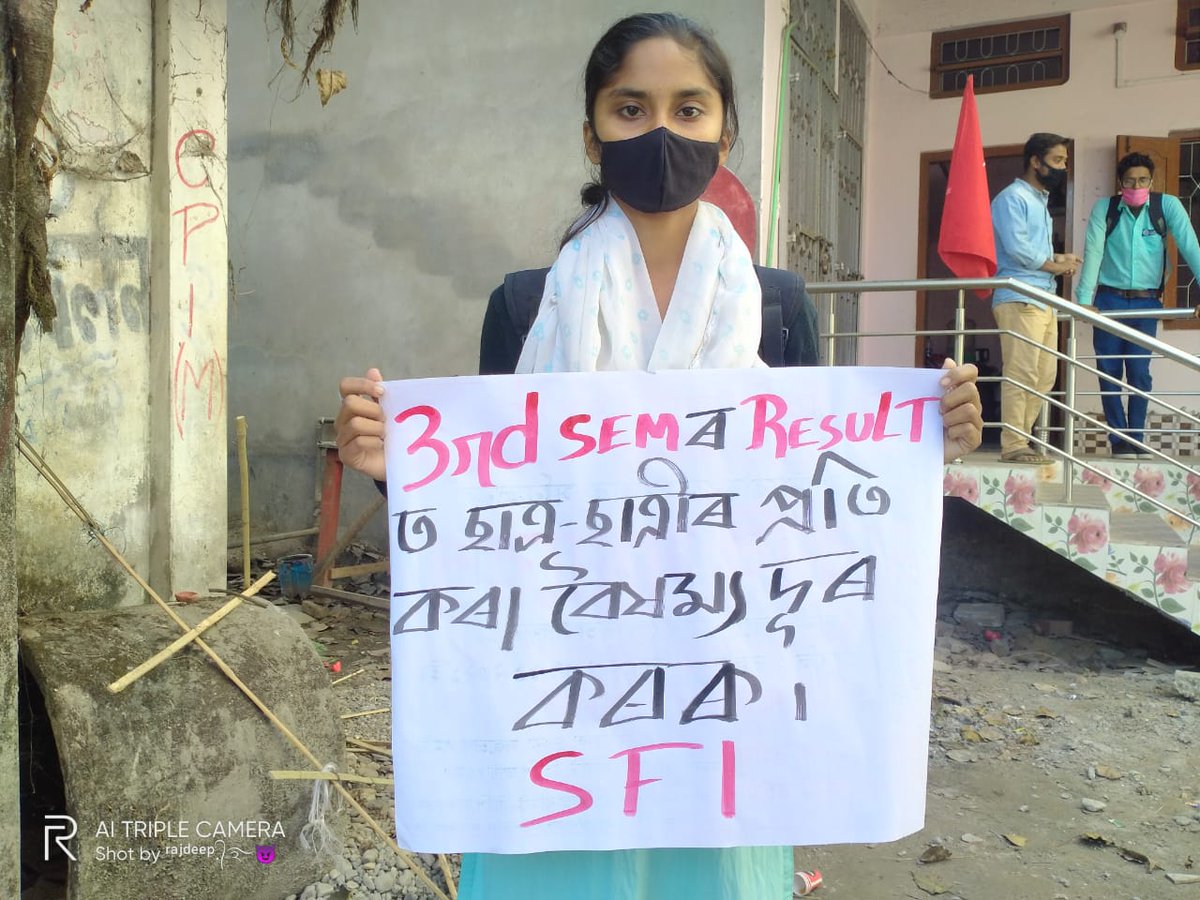 CPI(M)
3rd SEMৰ RESULT
ত ছাত্ৰ-ছাত্ৰীৰ প্ৰতি
কৰা বৈষম্য দূৰ
কৰক।
SFI
AI TRIPLE CAMERA
Shot by rajdeep